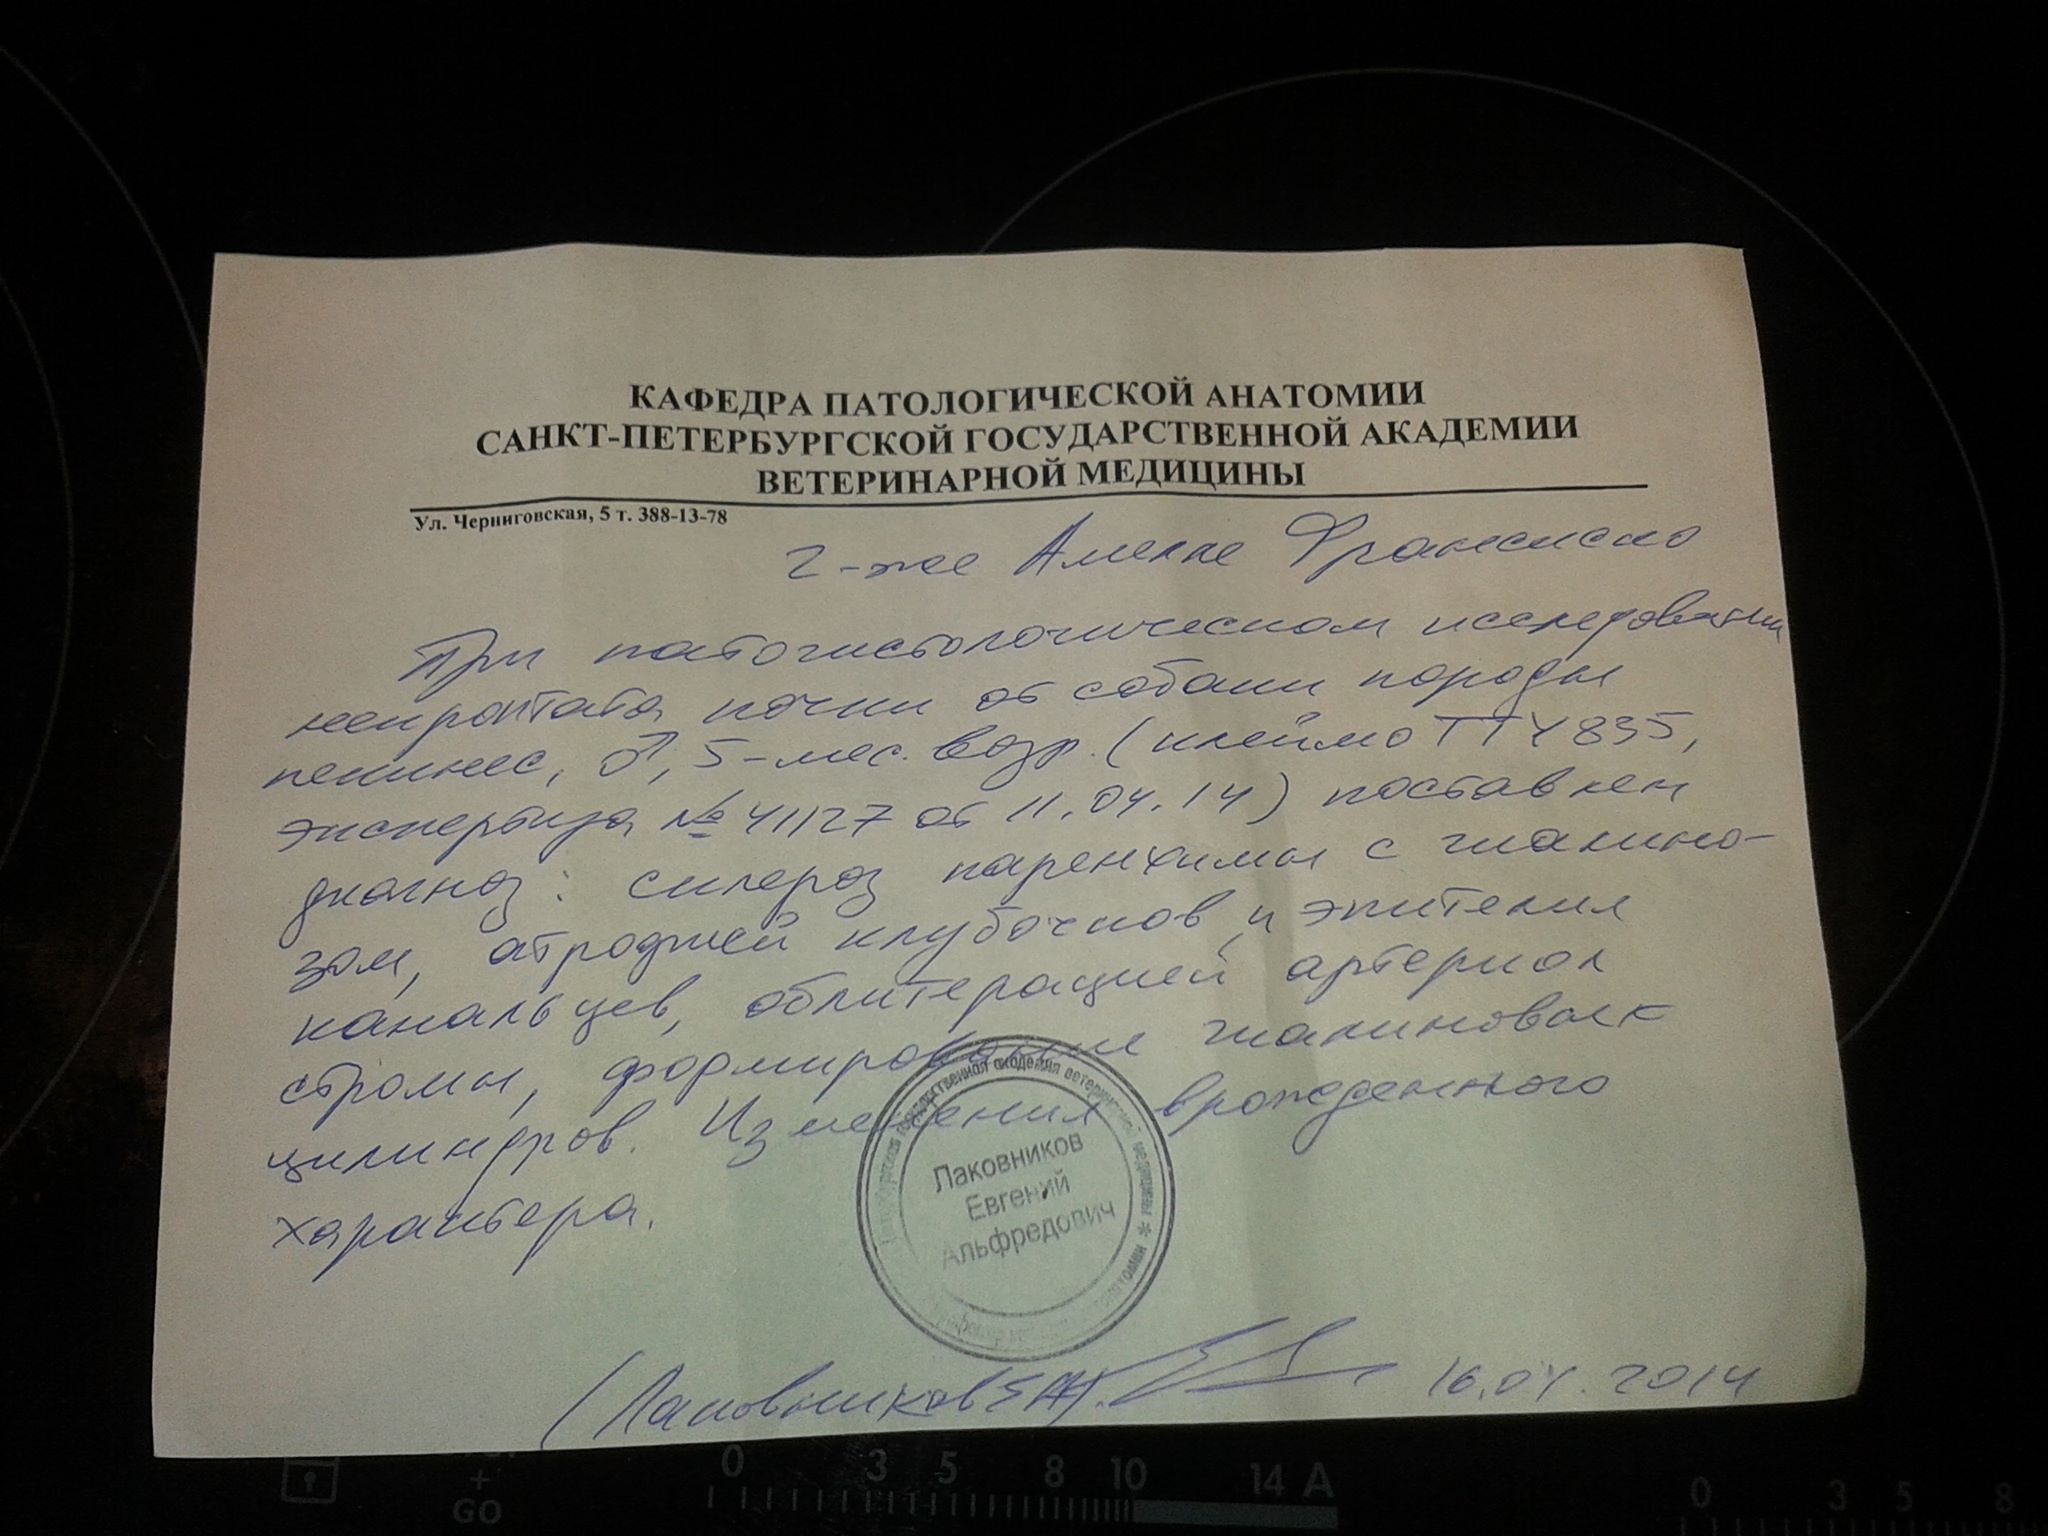 КАФЕДРА ПАТОЛОГИЧЕСКОЙ АНАТОМИИ
САНКТ-ПЕТЕРБУРГСКОЙ ГОСУДАРСТВЕННОЙ АКАДЕМИИ
ВЕТЕРИНАРНОЙ МЕДИЦИНЫ
Ул. Черниговская, 5 т. 388-13-78
г-же Франсиско
При патогистологическом исследовании
почки от собаки породы
пекинес, ♂, 5-мес. возр. (клеймо TTY835,
экспертиза № 41127 от 11.04.14) поставлен
диагноз: склероз паренхимы с гиалино-
зом, атрофией клубочков и эпителия
канальцев, облитерацией артериол
стромы, гиалиновых
цилиндров. Изменения врожденного
характера.
государственная академия ветеринарной медицины *
Лаковников
Евгений
Альфредович
(Лаковников Е.А.) 16.04.2014
+
GO
0 3 5 8 10 14 A
0 3 5 8